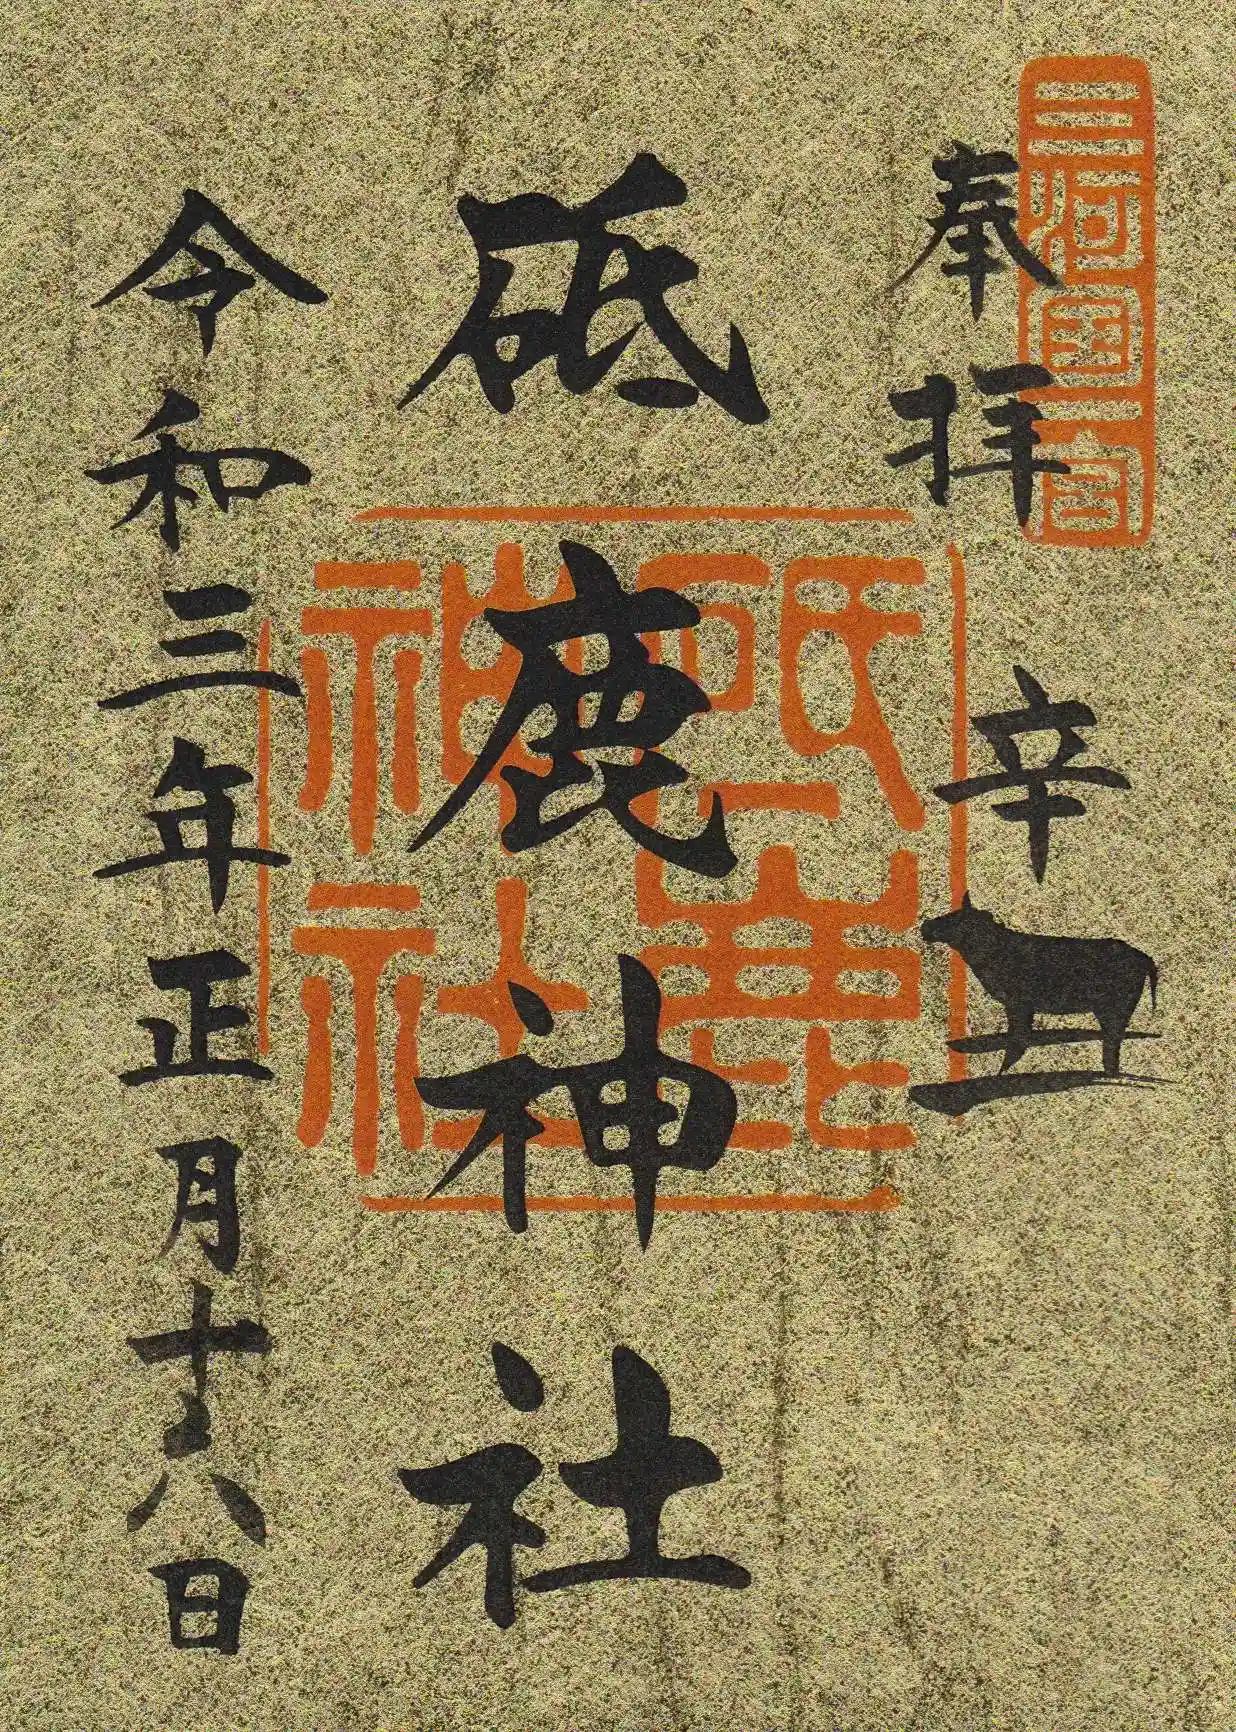 三河国一宮
奉拝
辛丑
砥鹿神社
砥鹿神社
令和三年正月十八日